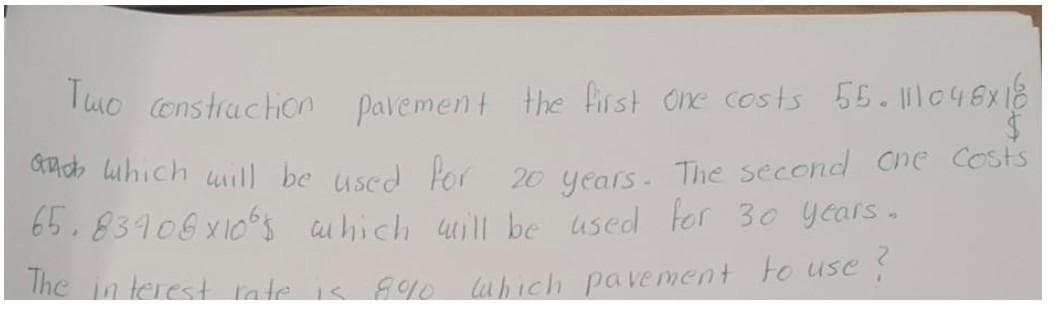 Two construction pavement the first one costs 55.111048x10⁶
$
which will be used for 20 years. The second one costs
65.83908x10⁶$ which will be used for 30 years.
The interest rate is 8% which pavement to use?